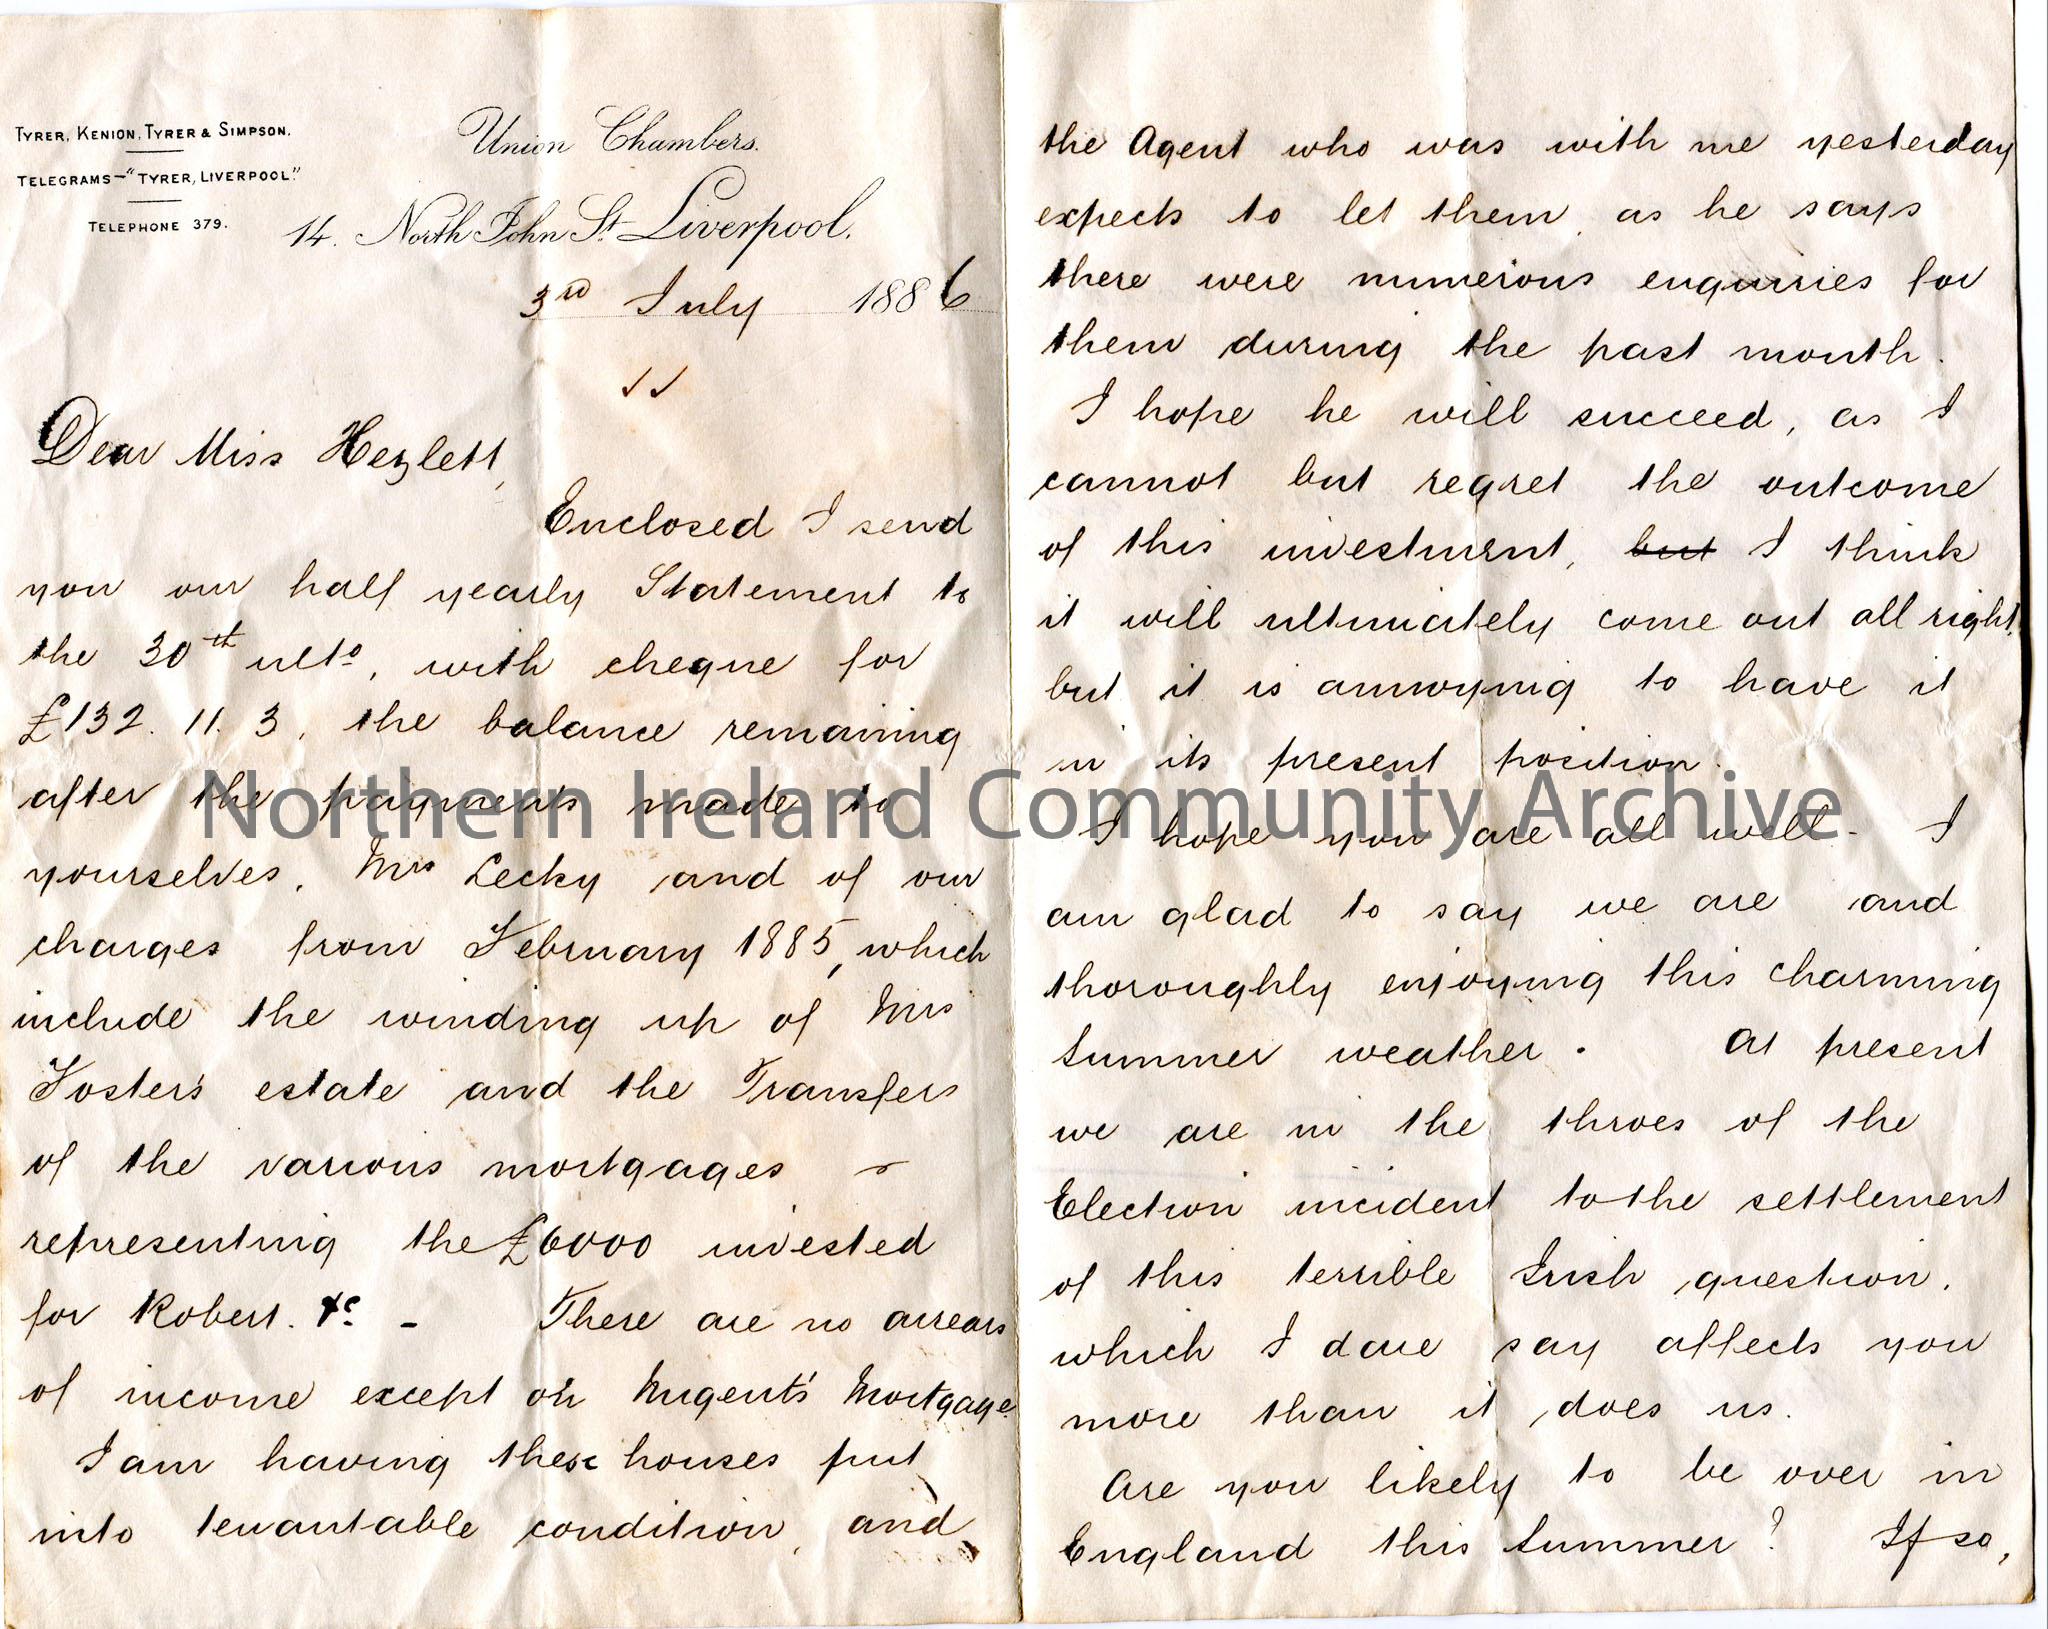 TYRER, KENION, TYRER & SIMPSON.
TELEGRAMS—"TYRER, LIVERPOOL."
TELEPHONE 379.
Union Chambers.
14. North John St. Liverpool.
3rd July 1886
Dear Miss Hezlett,
Enclosed I send
you our half yearly Statement to
the 30th ulto, with cheque for
£132. 11. 3, the balance remaining
after the payments made to
yourselves, Mrs Lecky and of our
charges from February 1885, which
include the winding up of Mrs
Foster's estate and the Transfers
of the various mortgages
representing the £6000 invested
for Robert. &c. - There are no arrears
of income except on Nugent's Mortgage.
I am having these houses put
into tenantable condition, and
the Agent who was with me yesterday
expects to let them, as he says
there were numerous enquiries for
them during the past month.
I hope he will succeed, as I
cannot but regret the outcome
of this investment, but I think
it will ultimately come out all right,
but it is annoying to have it
in its present position.
I hope you are all well - I
am glad to say we are and
thoroughly enjoying this charming
Summer weather. At present
we are in the throes of the
Election incident to the settlement
of this terrible Irish question,
which I dare say affects you
more than it does us.
Are you likely to be over in
England this Summer? If so,
Northern Ireland Community Archive